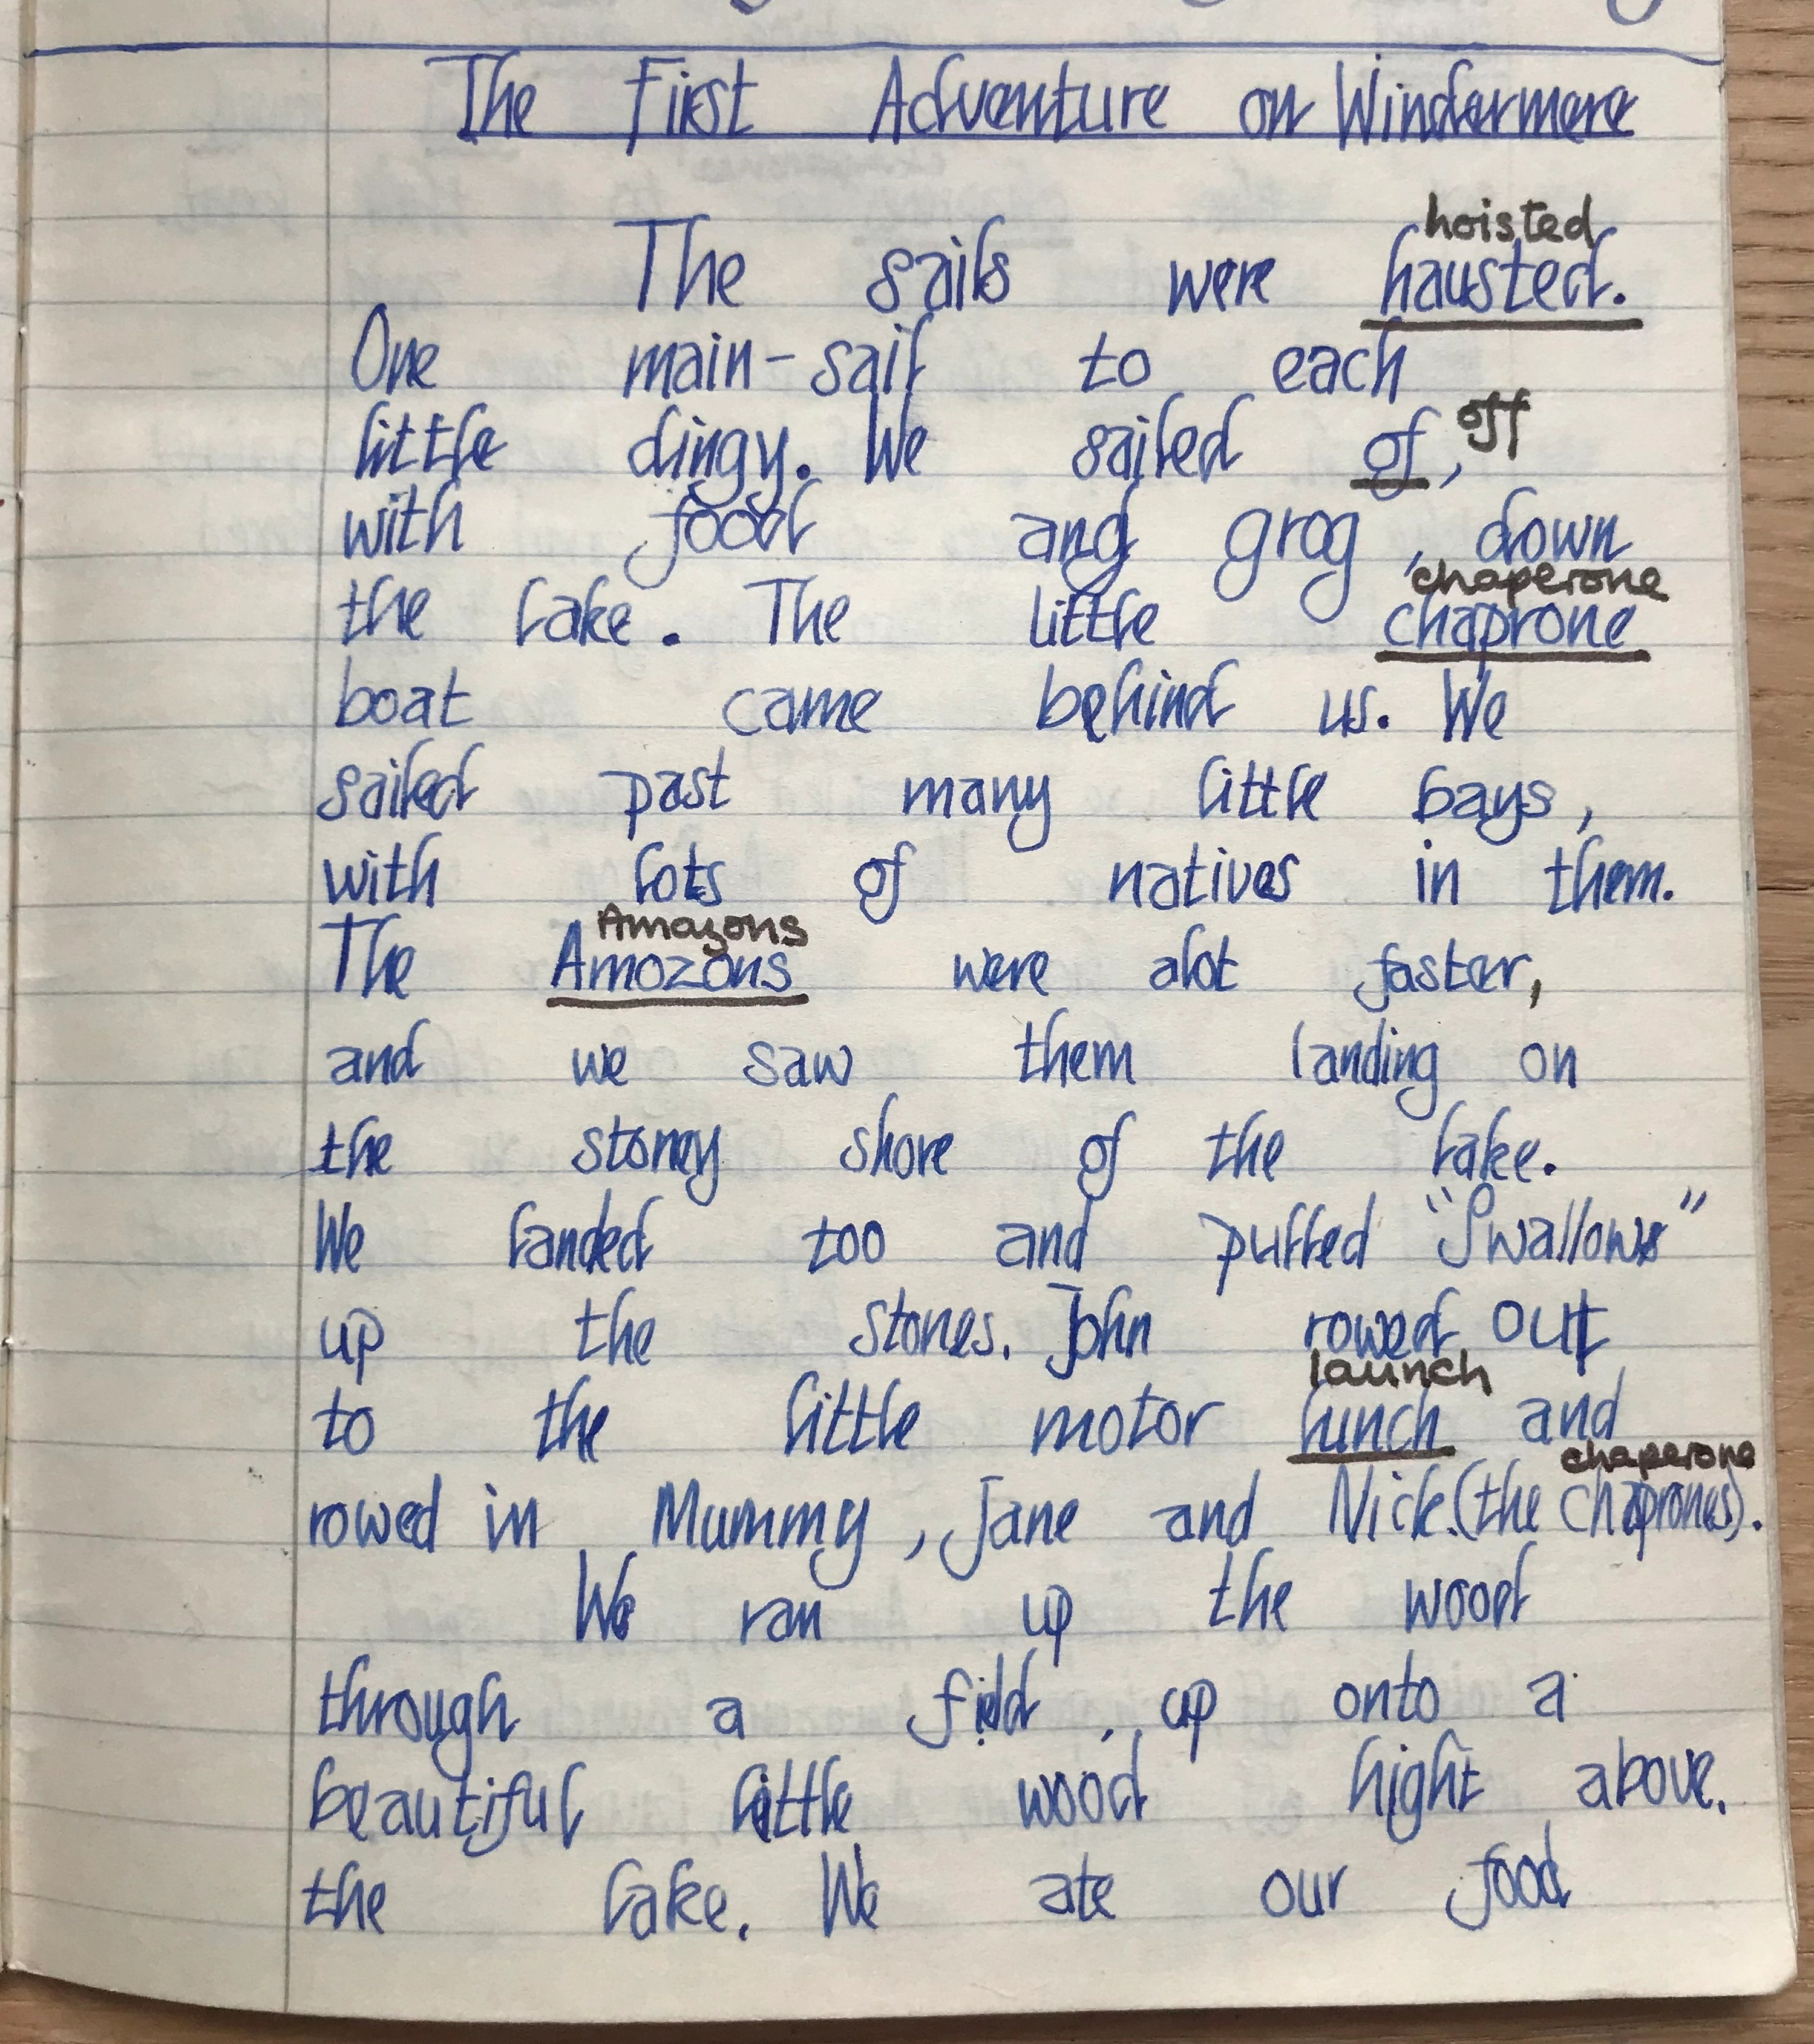 The First Adventure on Windermere
hoisted
The sails were hausted.
One main-sail to each
little dingy. We sailed of, off
with food and grog, down
chaperone
the lake. The little chaprone
boat came behind us. We
sailed past many little bays,
with lots of natives in them.
Amazons
The Amozons were alot faster,
and we saw them landing on
the stoney shore of the lake.
We landed too and pulled "Swallows"
up the stones. John rowed out
launch
to the little motor lunch and
chaperone
rowed in Mummy, Jane and Nick.(the Chaprones).
We ran up the wood
through a field, up onto a
beautiful little wood hight above.
the lake. We ate our food